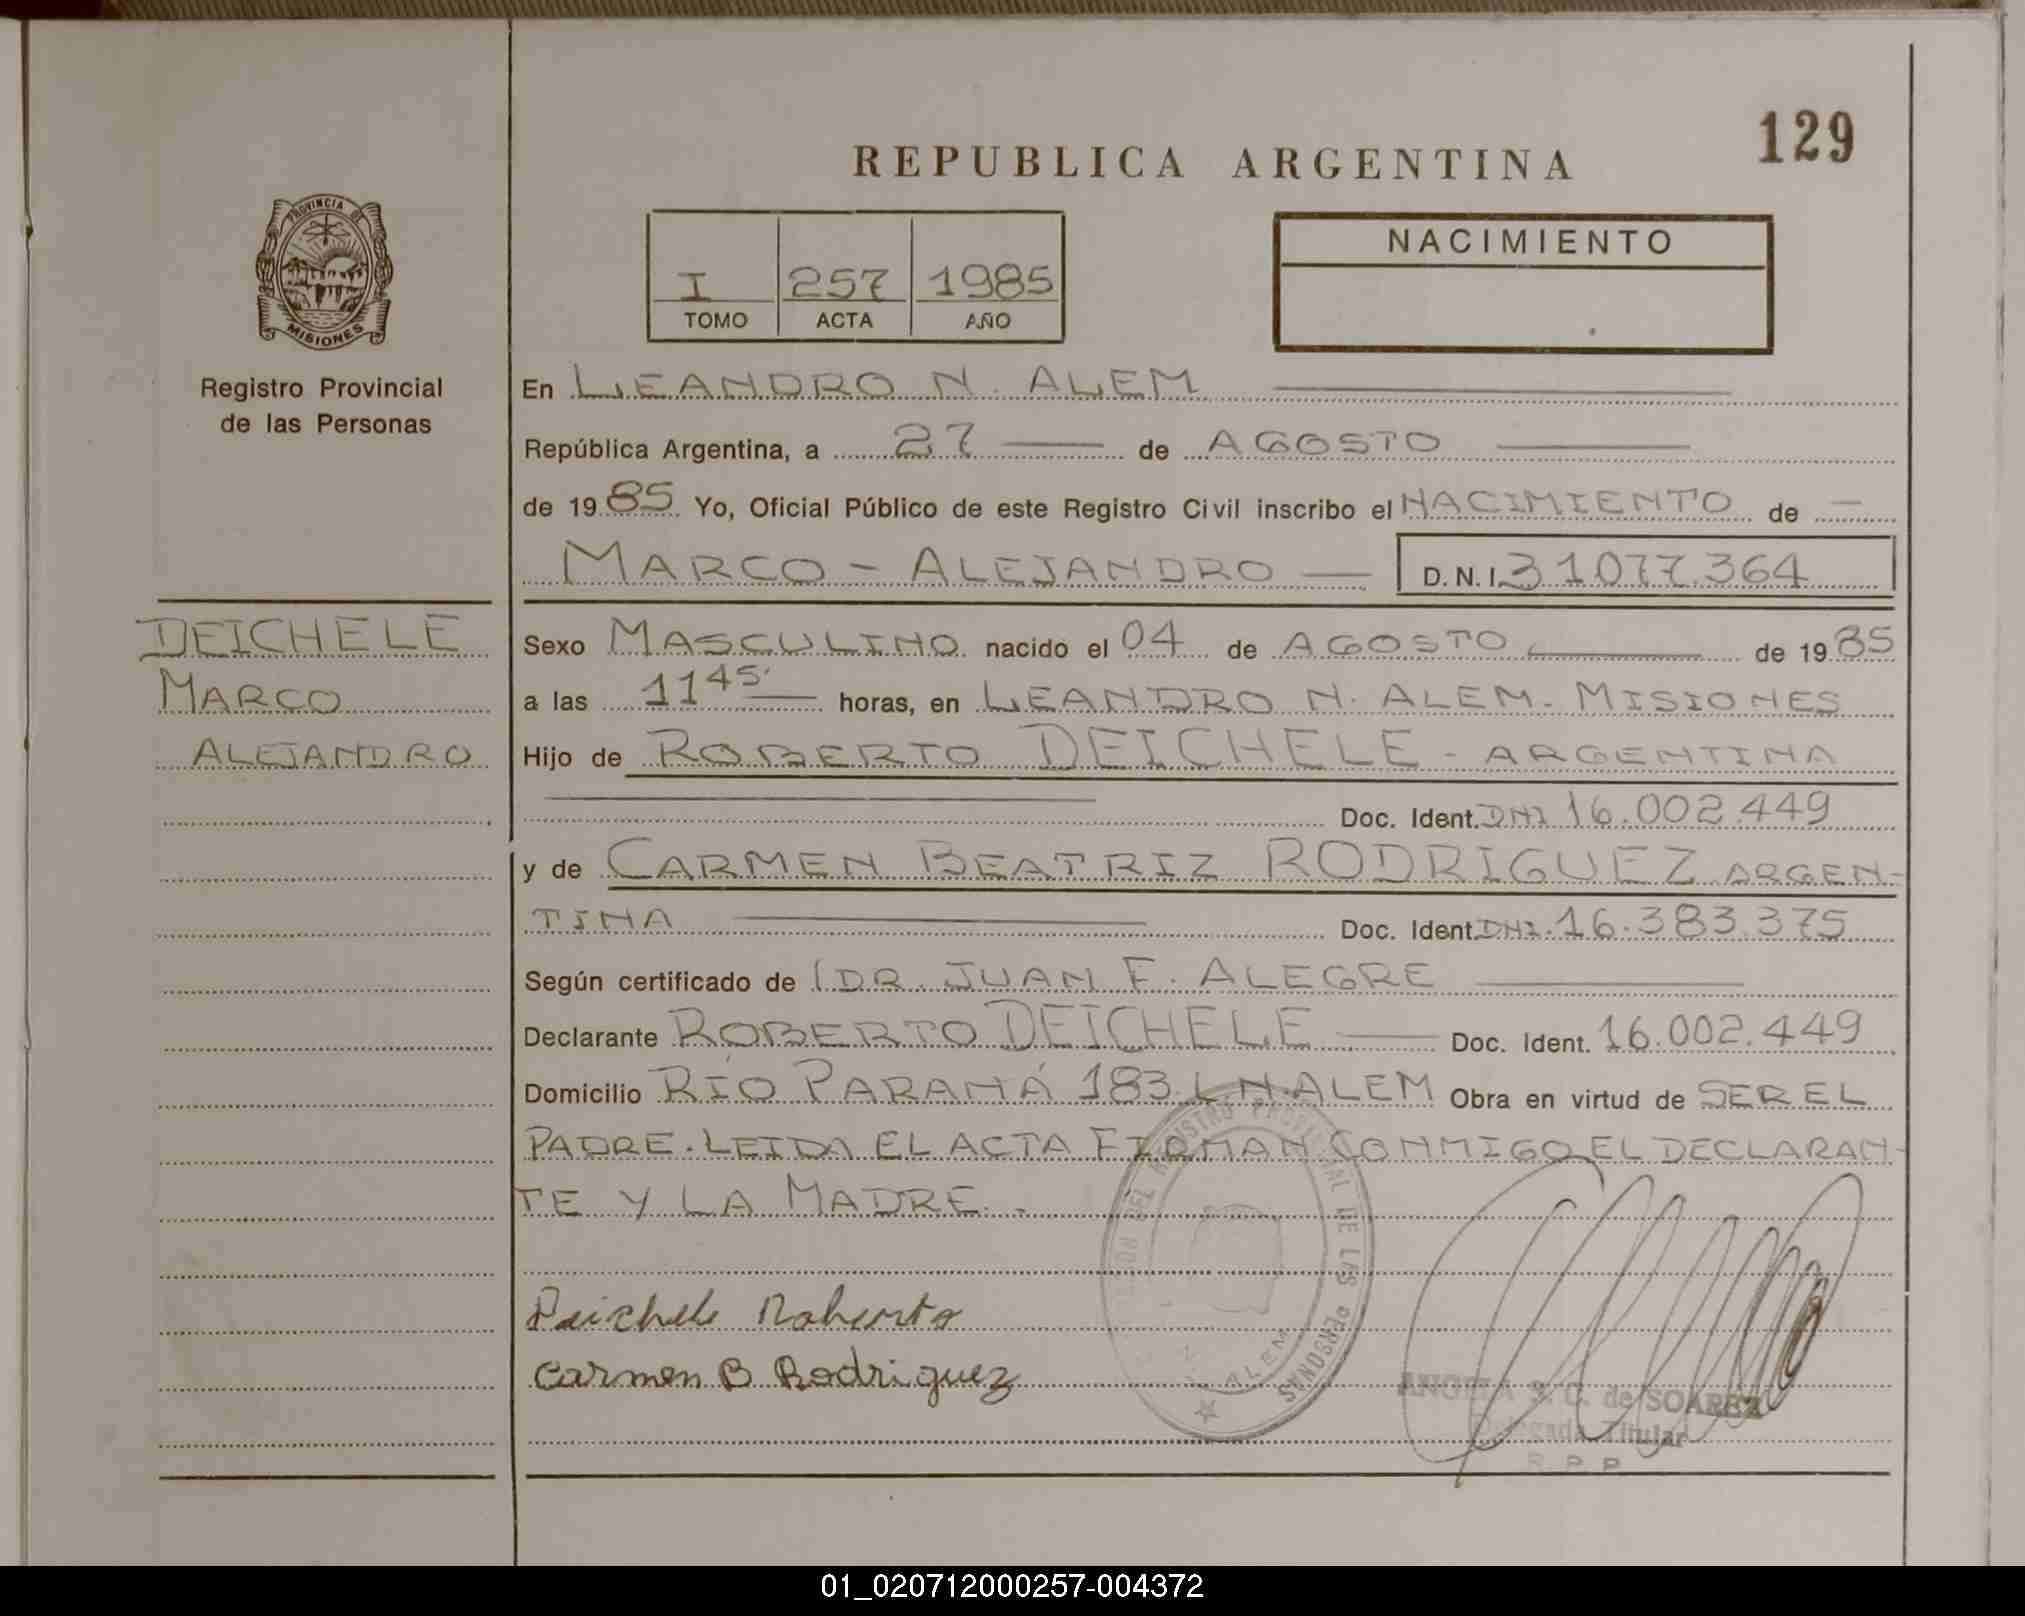 129
REPUBLICA ARGENTINA
PROVINCIA DE
MISIONES
Registro Provincial
de las Personas
I 257 1985
TOMO ACTA AÑO
NACIMIENTO
En LEANDRO N. ALEM
República Argentina, a 27 de AGOSTO
de 1985 Yo, Oficial Público de este Registro Civil inscribo el NACIMIENTO de
MARCO - ALEJANDRO D.N.I. 31.077.364
DEICHELE
MARCO
ALEJANDRO
Sexo MASCULINO nacido el 04 de AGOSTO de 1985
a las 11 45' horas, en LEANDRO N. ALEM. MISIONES
Hijo de ROBERTO DEICHELE - ARGENTINA
Doc. Ident. DNI 16.002.449
y de CARMEN BEATRIZ RODRIGUEZ ARGEN-
TINA Doc. Ident. DNI. 16.383.375
Según certificado de DR. JUAN F. ALEGRE
Declarante ROBERTO DEICHELE Doc. Ident. 16.002.449
Domicilio RÍO PARANÁ 183 L.N.ALEM Obra en virtud de SER EL
PADRE. LEIDA EL ACTA FIRMAN CONMIGO EL DECLARAN-
TE Y LA MADRE.
DEL REGISTRO PROVINCIAL DE LAS PERSONAS
ALEM
Deichele Roberto
Carmen B Rodriguez
S. C. de SOAREZ
Delegada Titular
R. P. P.
01_020712000257-004372